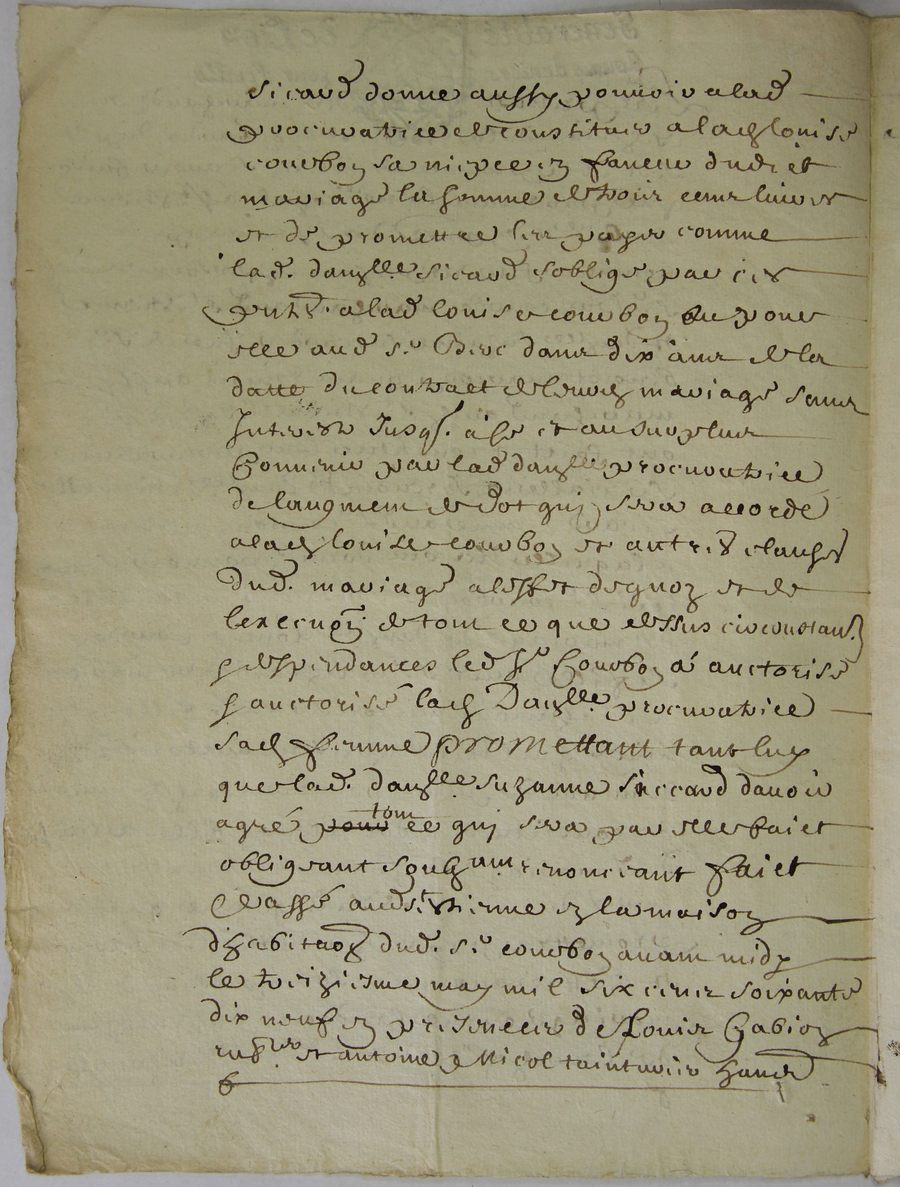 Sicaud donne aussy pouvoir a lad
procuratrice de constituer a lad louise
courbon sa niepce en faveur dudit
mariage la somme de trois cens livres
et de promettre les payer comme
lad. dauzlle Sicaud soblige par ces
pntes. a lad louise courbon ou pour
elle aud sr dans dix ans de la
datte du contract de leurd mariage sans
Interestz Jusqs. a ce et au surplus
Convenir par lad dauzlle procuratrice
de laugment de dot quj sera accordé
a lad louise courbon et autres clauses
dud. mariage a leffet dequoy et de
lexecuon de tout ce que dessus circonstan.
& despendances led sr Courbon a auctorisé
& auctorise lad Dauzlle procuratrice
sad femme promettant tant luy
que lad. dauzlle suzanne siccaud davoir
agré pour tout ce quj sera par elle faict
obligeant renonceant faict
& passé aud st estienne en la maison
dhabitaon dud. sr courbon avant midy
le treiziesme may mil six cens soixante
dix neuf en presence de Louis Gabion
et antoine Nicol tainturier